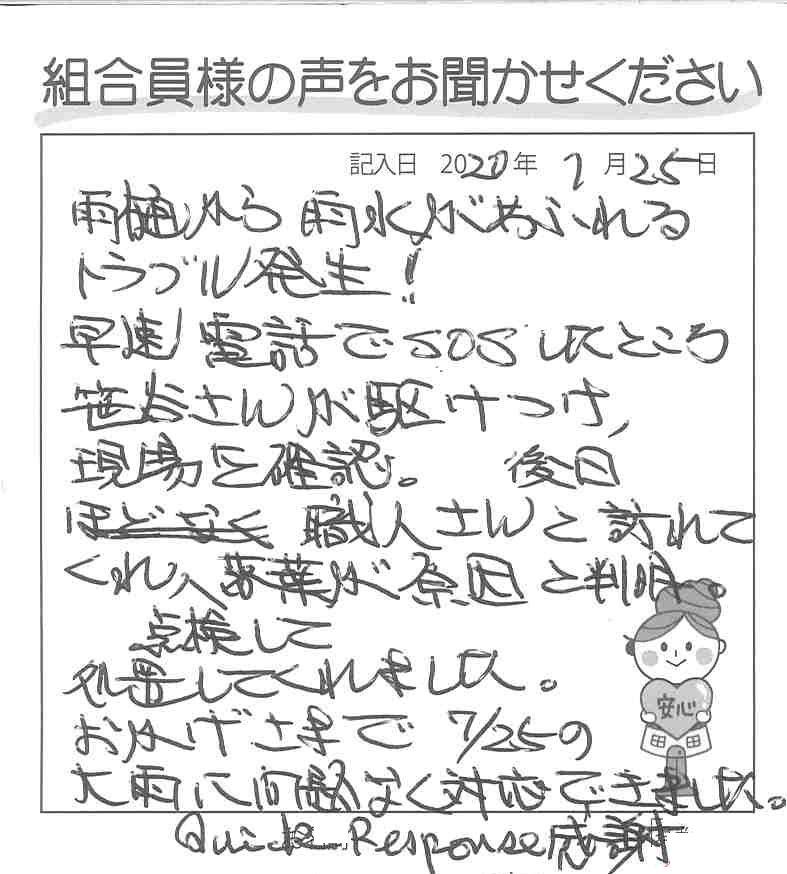 組合員様の声をお聞かせください
記入日 2020年 7月25日
雨樋から雨水があふれる
トラブル発生!
早速電話でSOSしたところ
笹谷さんが駆けつけ、
現場を確認。 後日
ほどなく 職人さんと訪れて
くれ、落葉が原因と判明。
点検して
処置してくれました。
おかげさまで 7/25の
大雨に問題なく対応できました。
Quick Response感謝
安心